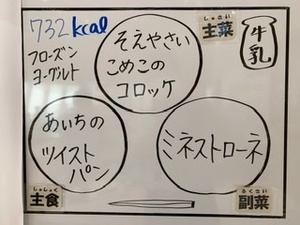 732kcal
フローズン
ヨーグルト
そえやさい
こめこの
コロッケ
しゅさい
主菜
牛乳
あいちの
ツイスト
パン
ミネストローネ
しゅしょく
主食
ふくさい
副菜